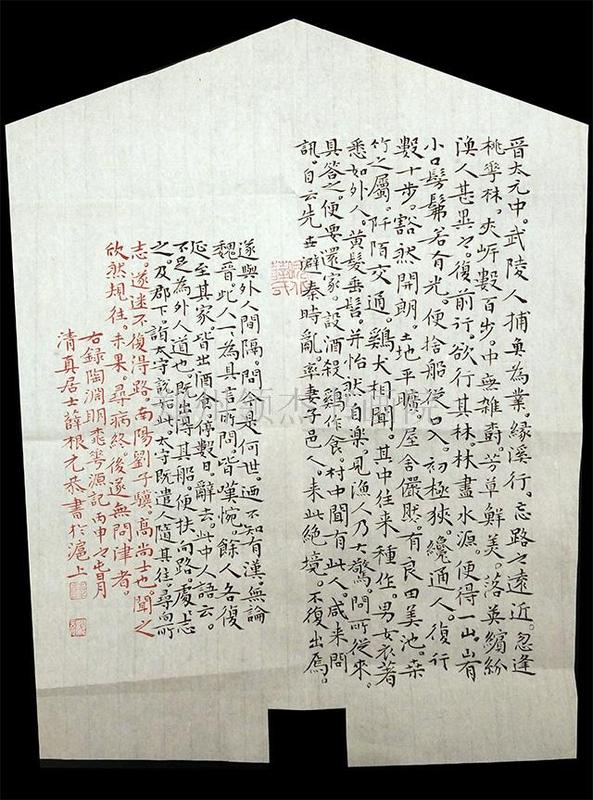 晉太元中。武陵人捕魚為業。緣溪行。忘路之遠近。忽逢
桃華林。夾岸數百步。中無雜樹。芳草鮮美。落英繽紛
漁人甚異之。復前行。欲行其林。林盡水源。便得一山。山有
小口。髣髴若有光。便捨船從口入。初極狹。纔通人。復行
數十步。豁然開朗。土地平曠。屋舍儼然。有良田美池。桑
竹之屬。阡陌交通。雞犬相聞。其中往來種作。男女衣著
悉如外人。黃髮垂髫。并怡然自樂。見漁人乃大驚。問所從來。
具答之。便要還家。設酒殺雞作食。村中聞有此人。咸來問
訊。自云先世避秦時亂。率妻子邑人。來此絕境。不復出焉。
遂與外人間隔。問今是何世。廼不知有漢。無論
魏晉。此人一一為具言所聞。皆嘆惋。餘人各復
延至其家。皆出酒食。停數日。辭去。此中人語云。
不足為外人道也。既出得其船。便扶向路。處處志
之。及郡下。詣太守說如此。太守既遣人隨其往。尋向所
志。遂迷不復得路。南陽劉子驥。高尚士也。聞之
欣然規往。未果。尋病終。後遂無問津者。
右錄陶淵明桃華源記丙申之月
清真居士薛根元恭書於滬上